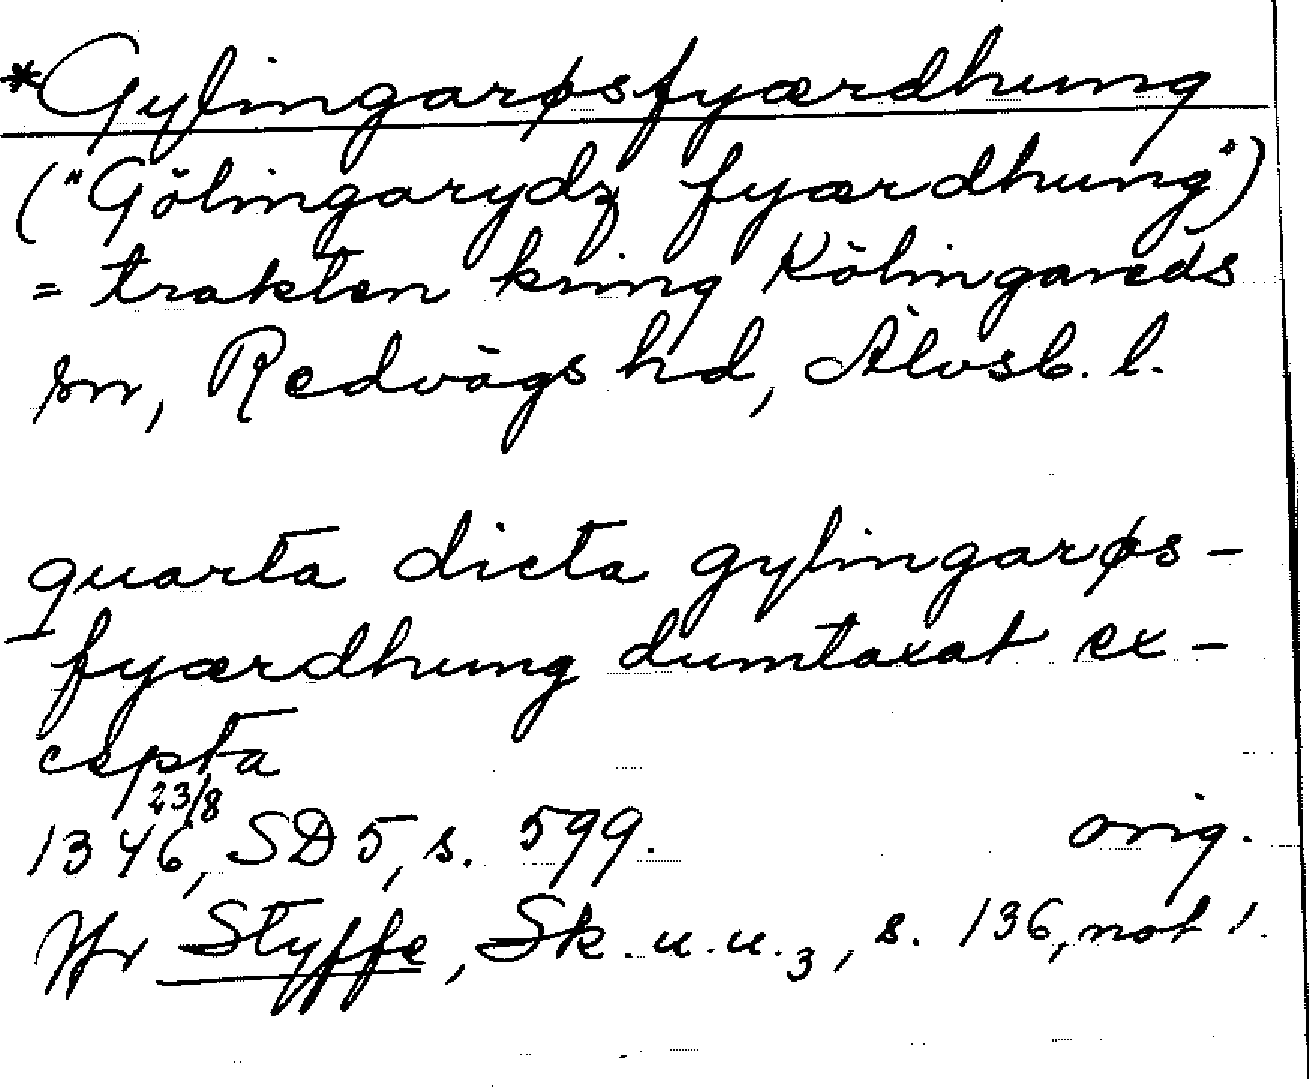 *Gylingarpsfyærdhung
("Gölingarydz fyærdhung")
= trakten kring Kölingareds
sn, Redvägs hd, Älvsb. l.
quarta dicta gylingarps-
fyærdhung dumtaxat ex-
cepta
1346 23/8, SD 5, s. 599. orig.
Jfr Styffe, Sk. u. u. 3, s. 136, not 1.